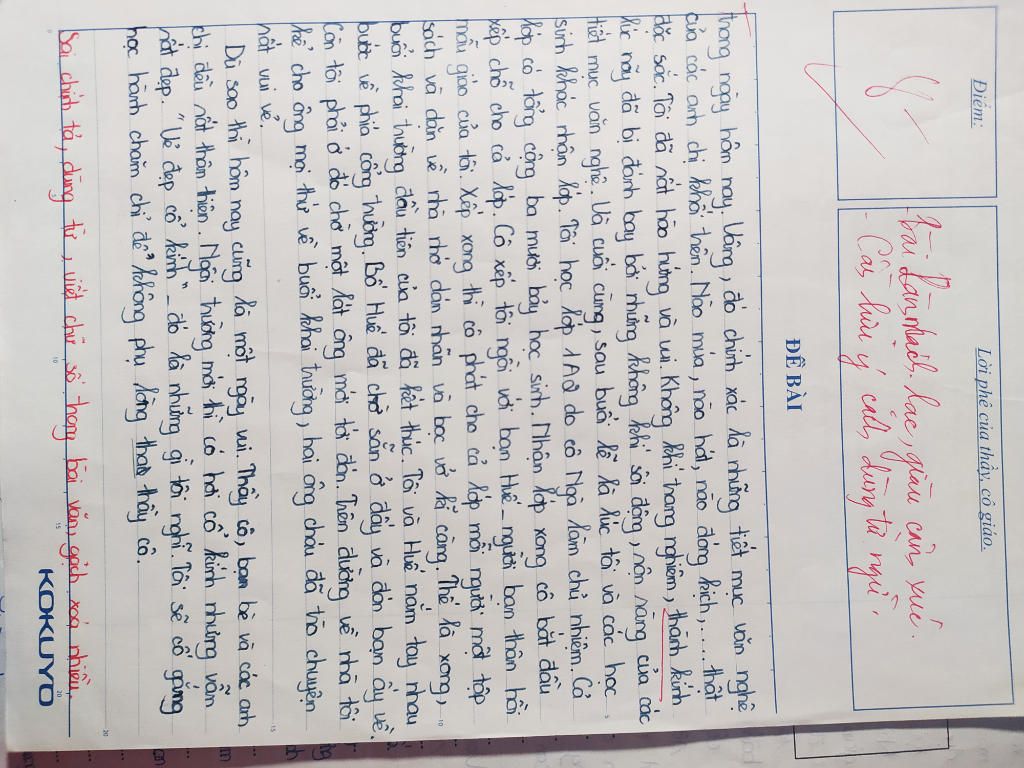 Điểm:
8-
Lời phê của thầy, cô giáo.
- Bài làm mạch lạc, giàu cảm xúc.
- Cần lưu ý cách dùng từ ngữ.
ĐỀ BÀI
trong ngày hôm nay. Vâng, đó chính xác là những tiết mục văn nghệ
của các anh chị khối trên. Nào múa, nào hát, nào đóng kịch,.... thật
đặc sắc. Tôi đã rất hào hứng và vui. Không khí trang nghiêm, thành kính
lúc nãy đã bị đánh bay bởi những không khí sôi động, rộn ràng của các
tiết mục văn nghệ. Và cuối cùng, sau buổi lễ là lúc tôi và các học
sinh khác nhận lớp. Tôi học lớp 1A0 do cô Ngà làm chủ nhiệm. Cả
lớp có tổng cộng ba mươi bảy học sinh. Nhận lớp xong cô bắt đầu
xếp chỗ cho cả lớp. Cô xếp tôi ngồi với bạn Huế - người bạn thân hồi
mẫu giáo của tôi. Xếp xong thì cô phát cho cả lớp mỗi người một tập
sách và dặn về nhà nhớ dán nhãn và bọc vở kĩ càng. Thế là xong,
buổi khai trường đầu tiên của tôi đã kết thúc. Tôi và Huế nắm tay nhau
bước về phía cổng trường. Bố Huế đã chờ sẵn ở đấy và đón bạn ấy về.
Còn tôi phải ở đó chờ một lát ông mới tới đón. Trên đường về nhà tôi
kể cho ông mọi thứ về buổi khai trường, hai ông cháu đã trò chuyện
rất vui vẻ.
Dù sao thì hôm nay cũng là một ngày vui. Thầy cô, bạn bè và các anh
chị đều rất thân thiện. Ngôi trường mới thì có hơi cổ kính nhưng vẫn
rất đẹp. "Vẻ đẹp cổ kính" - đó là những gì tôi nghĩ. Tôi sẽ cố gắng
học hành chăm chỉ để không phụ lòng thao thầy cô.
Sai chính tả, dùng từ, viết chữ số trong bài văn, gạch xoá nhiều
0
5
10
15
20
5
10
15
20
KOKUYO